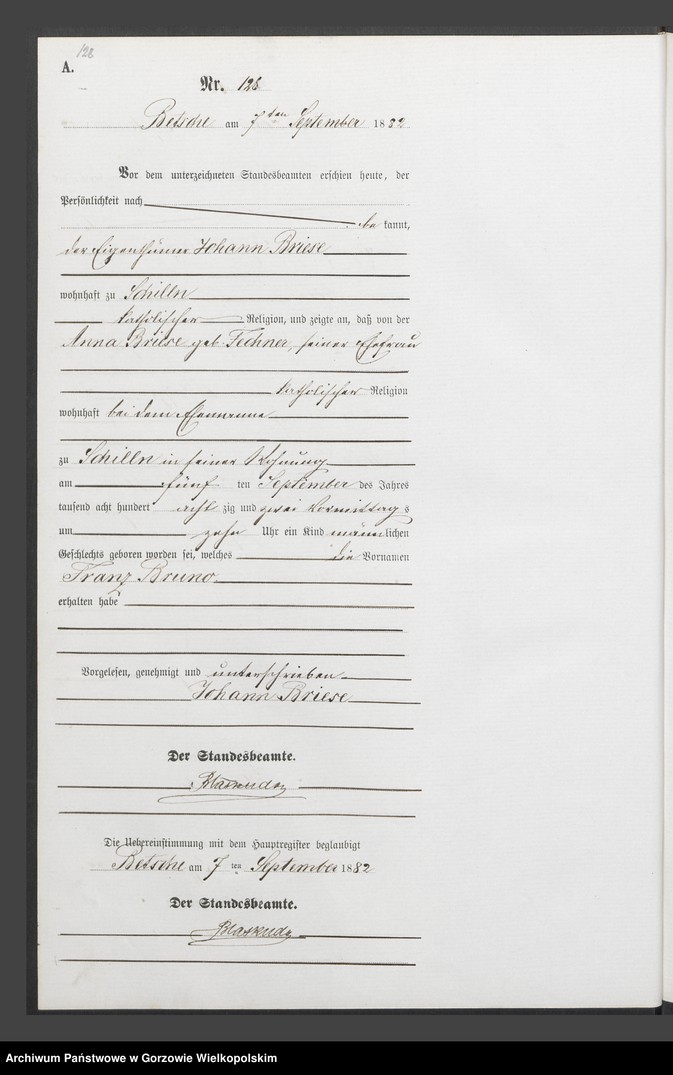 128
A.
Nr. 128
Betsche am 7ten September 1882
Vor dem unterzeichneten Standesbeamten erschien heute, der
Persönlichkeit nach
be kannt,
der Eigenthümer Johann Briese
wohnhaft zu Schilln
katholischer Religion, und zeigte an, daß von der
Anna Briese geb. Fechner, seiner Ehefrau
katholischer Religion
wohnhaft bei dem Ehemanne
zu Schilln in seiner Wohnung
am fünf ten September des Jahres
tausend acht hundert acht zig und zwei Vormittag s
um zehn Uhr ein Kind männlichen
Geschlechts geboren worden sei, welches die Vornamen
Franz Bruno
erhalten habe
Vorgelesen, genehmigt und unterschrieben
Johann Briese
Der Standesbeamte.
Die Uebereinstimmung mit dem Hauptregister beglaubigt
Betsche am 7 ten September 1882
Der Standesbeamte.
Archiwum Państwowe w Gorzowie Wielkopolskim